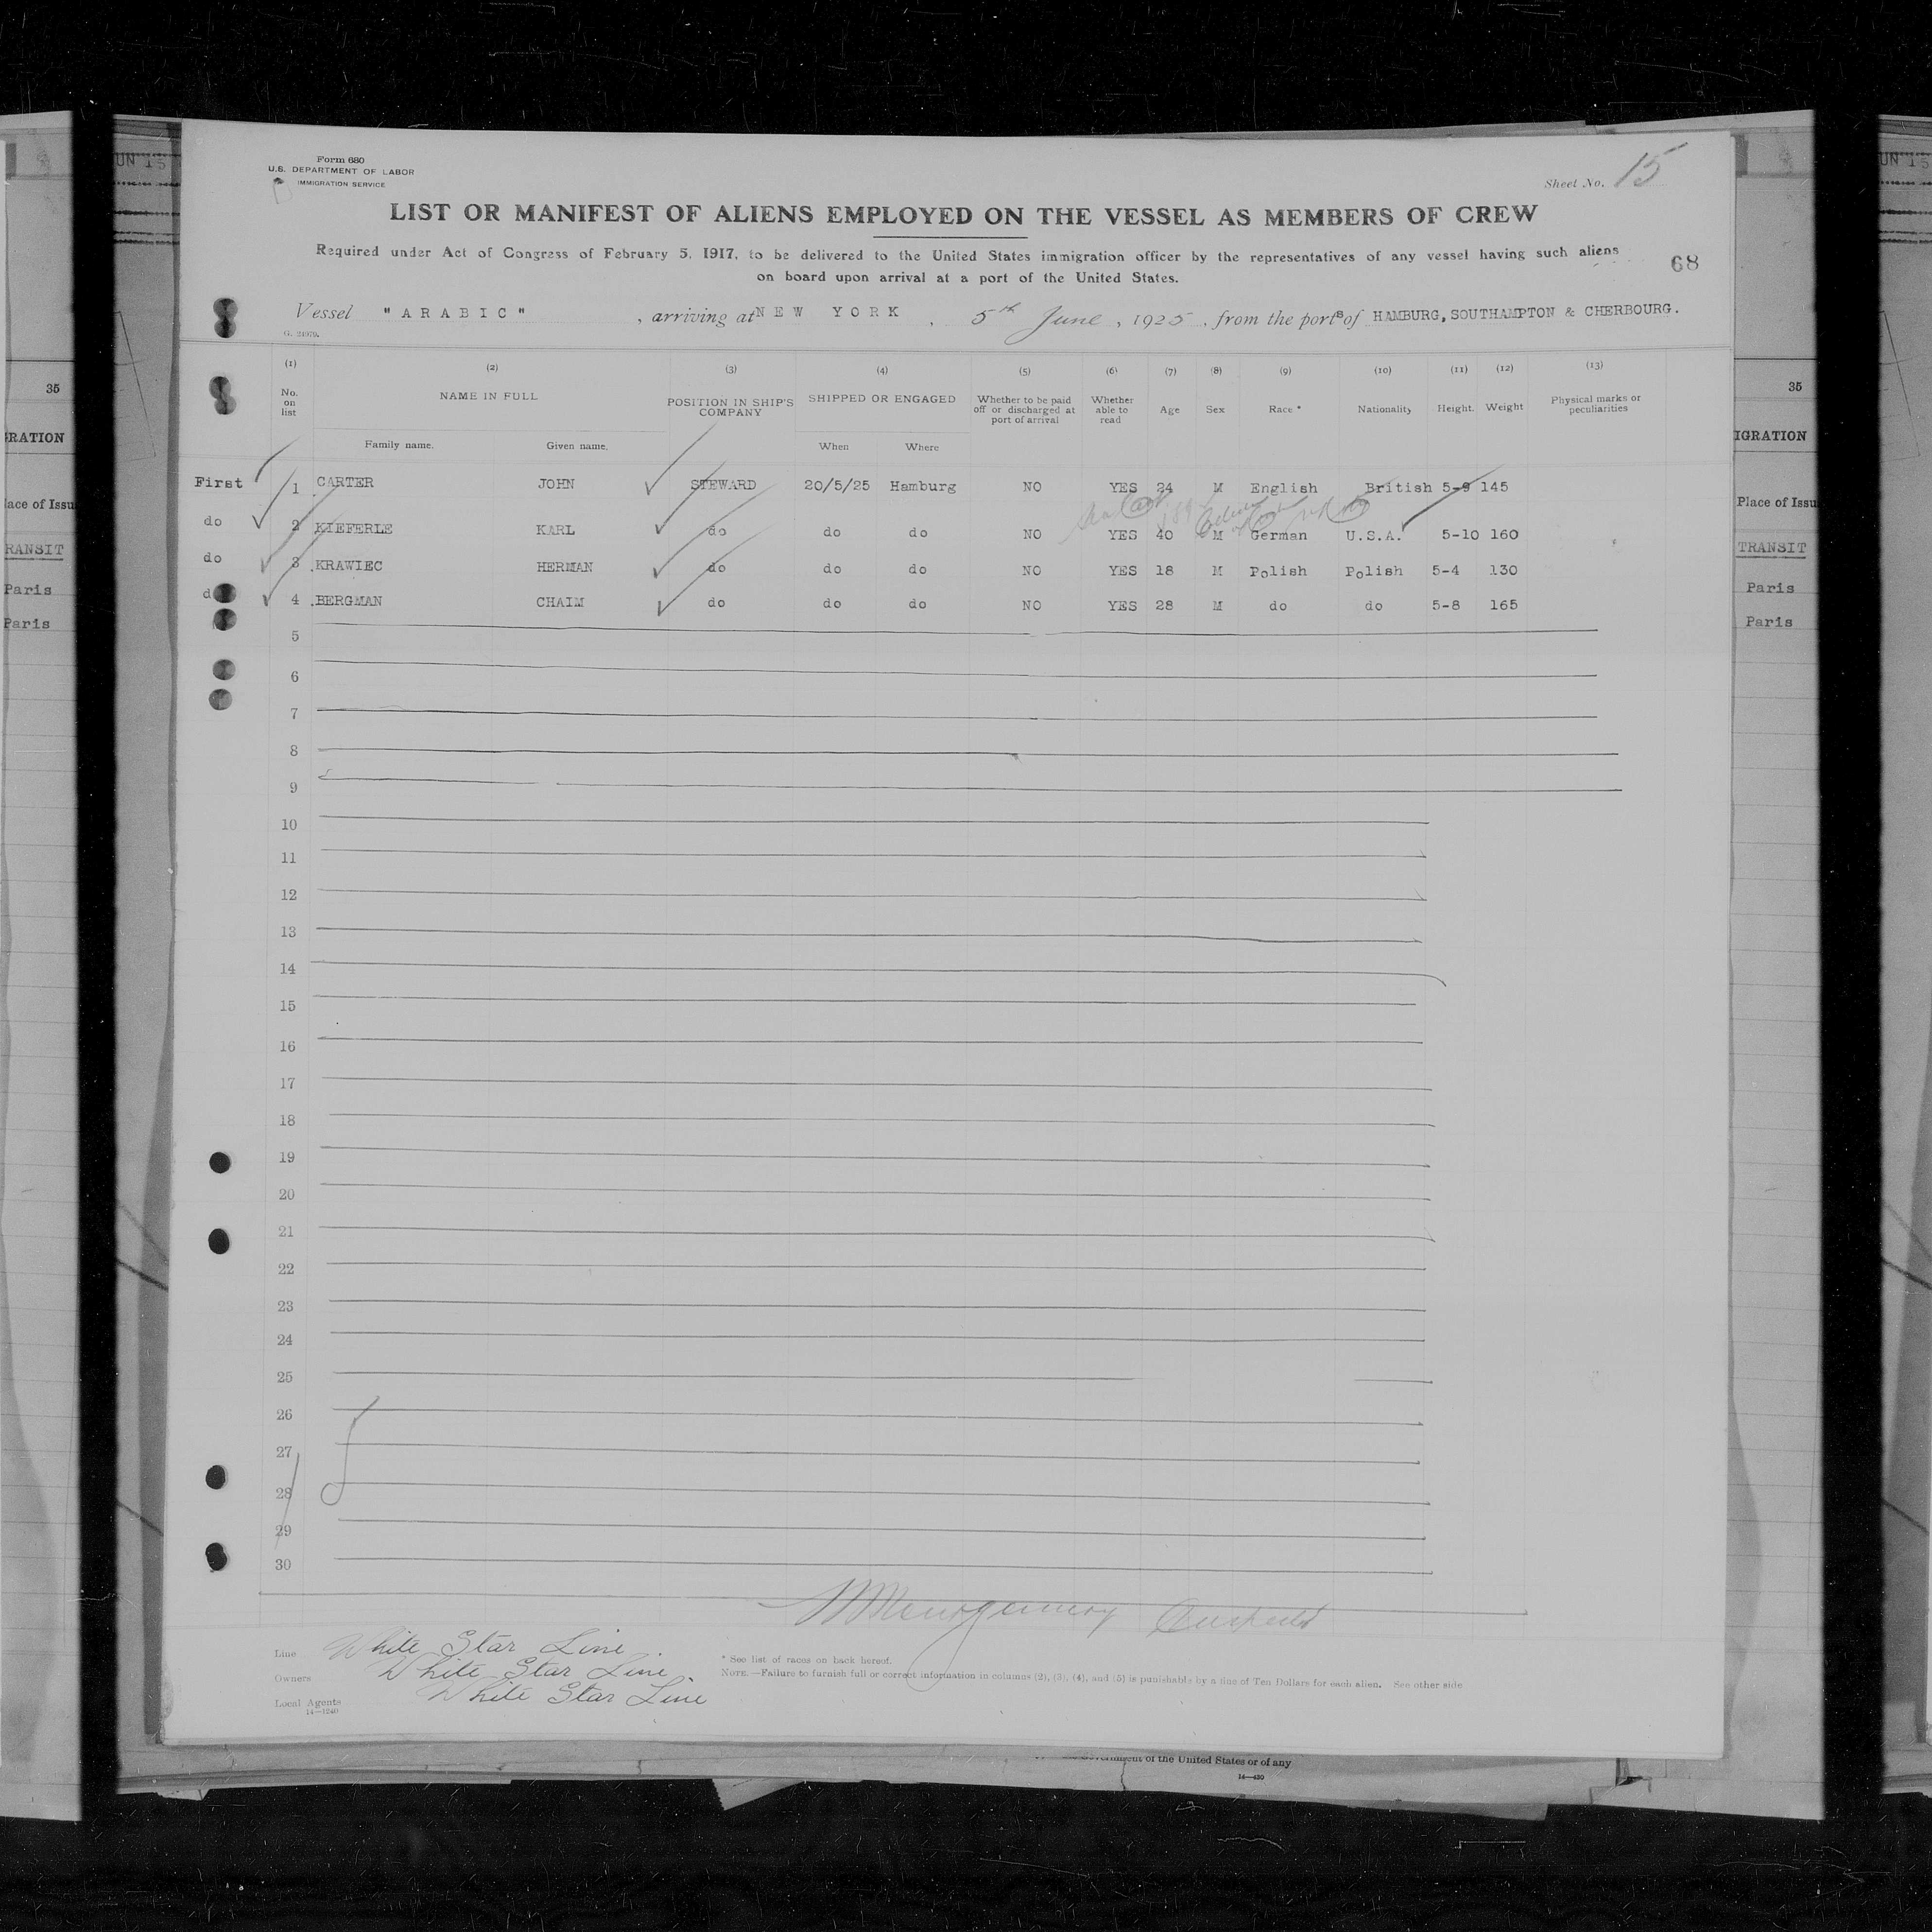 Form 680
U.S. DEPARTMENT OF LABOR
IMMIGRATION SERVICE
Sheet No. 15
LIST OR MANIFEST OF ALIENS EMPLOYED ON THE VESSEL AS MEMBERS OF CREW
Required under Act of Congress of February 5, 1917, to be delivered to the United States immigration officer by the representatives of any vessel having such aliens
on board upon arrival at a port of the United States.
68
Vessel "ARABIC", arriving at NEW YORK, 5th June, 1925, from the ports of HAMBURG, SOUTHAMPTON & CHERBOURG.
G. 21979.
(1) (2) (3) (4) (5) (6) (7) (8) (9) (10) (11) (12) (13)
No. on list NAME IN FULL POSITION IN SHIP'S COMPANY SHIPPED OR ENGAGED Whether to be paid off or discharged at port of arrival Whether able to read Age Sex Race * Nationality Height. Weight Physical marks or peculiarities
Family name. Given name. When Where
First 1 CARTER JOHN STEWARD 20/5/25 Hamburg NO YES 24 M English British 5-9 145
do 2 KIEFERLE KARL do do do NO YES 40 M German U.S.A. 5-10 160
do 3 KRAWIEC HERMAN do do do NO YES 18 M Polish Polish 5-4 130
4 BERGMAN CHAIM do do do NO YES 28 M do do 5-8 165
5
6
7
8
9
10
11
12
13
14
15
16
17
18
19
20
21
22
23
24
25
26
27
28
29
30
Line White Star Line.
Owners White Star Line.
Local Agents White Star Line
14—1240
* See list of races on back hereof.
NOTE.—Failure to furnish full or correct information in columns (2), (3), (4), and (5) is punishable by a fine of Ten Dollars for each alien. See other side
of the United States or of any
14—430
UN 15
35
Paris
Paris
35
IGRATION
Place of Issu
TRANSIT
Paris
Paris
UN 15